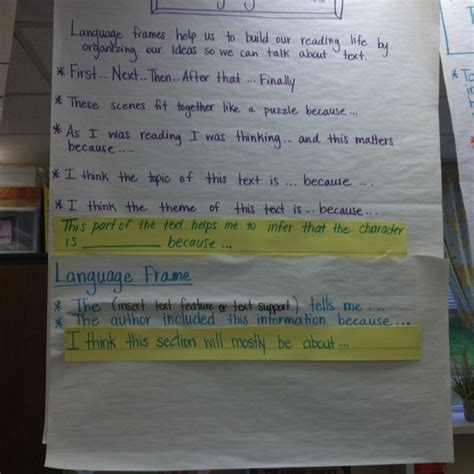 Language frames help us to build our reading life by
organizing our ideas so we can talk about text.
* First...Next...Then...After that ...Finally
* These scenes fit together like a puzzle because...
* As I was reading I was thinking... and this matters
because....
* I think the topic of this text is ... because ...
* I think the theme of this text is... because...
This part of the text helps me to infer that the character
is ________ because...
Language Frame
* The (insert text feature or text support) tells me ....
* The author included this information because....
I think this section will mostly be about...